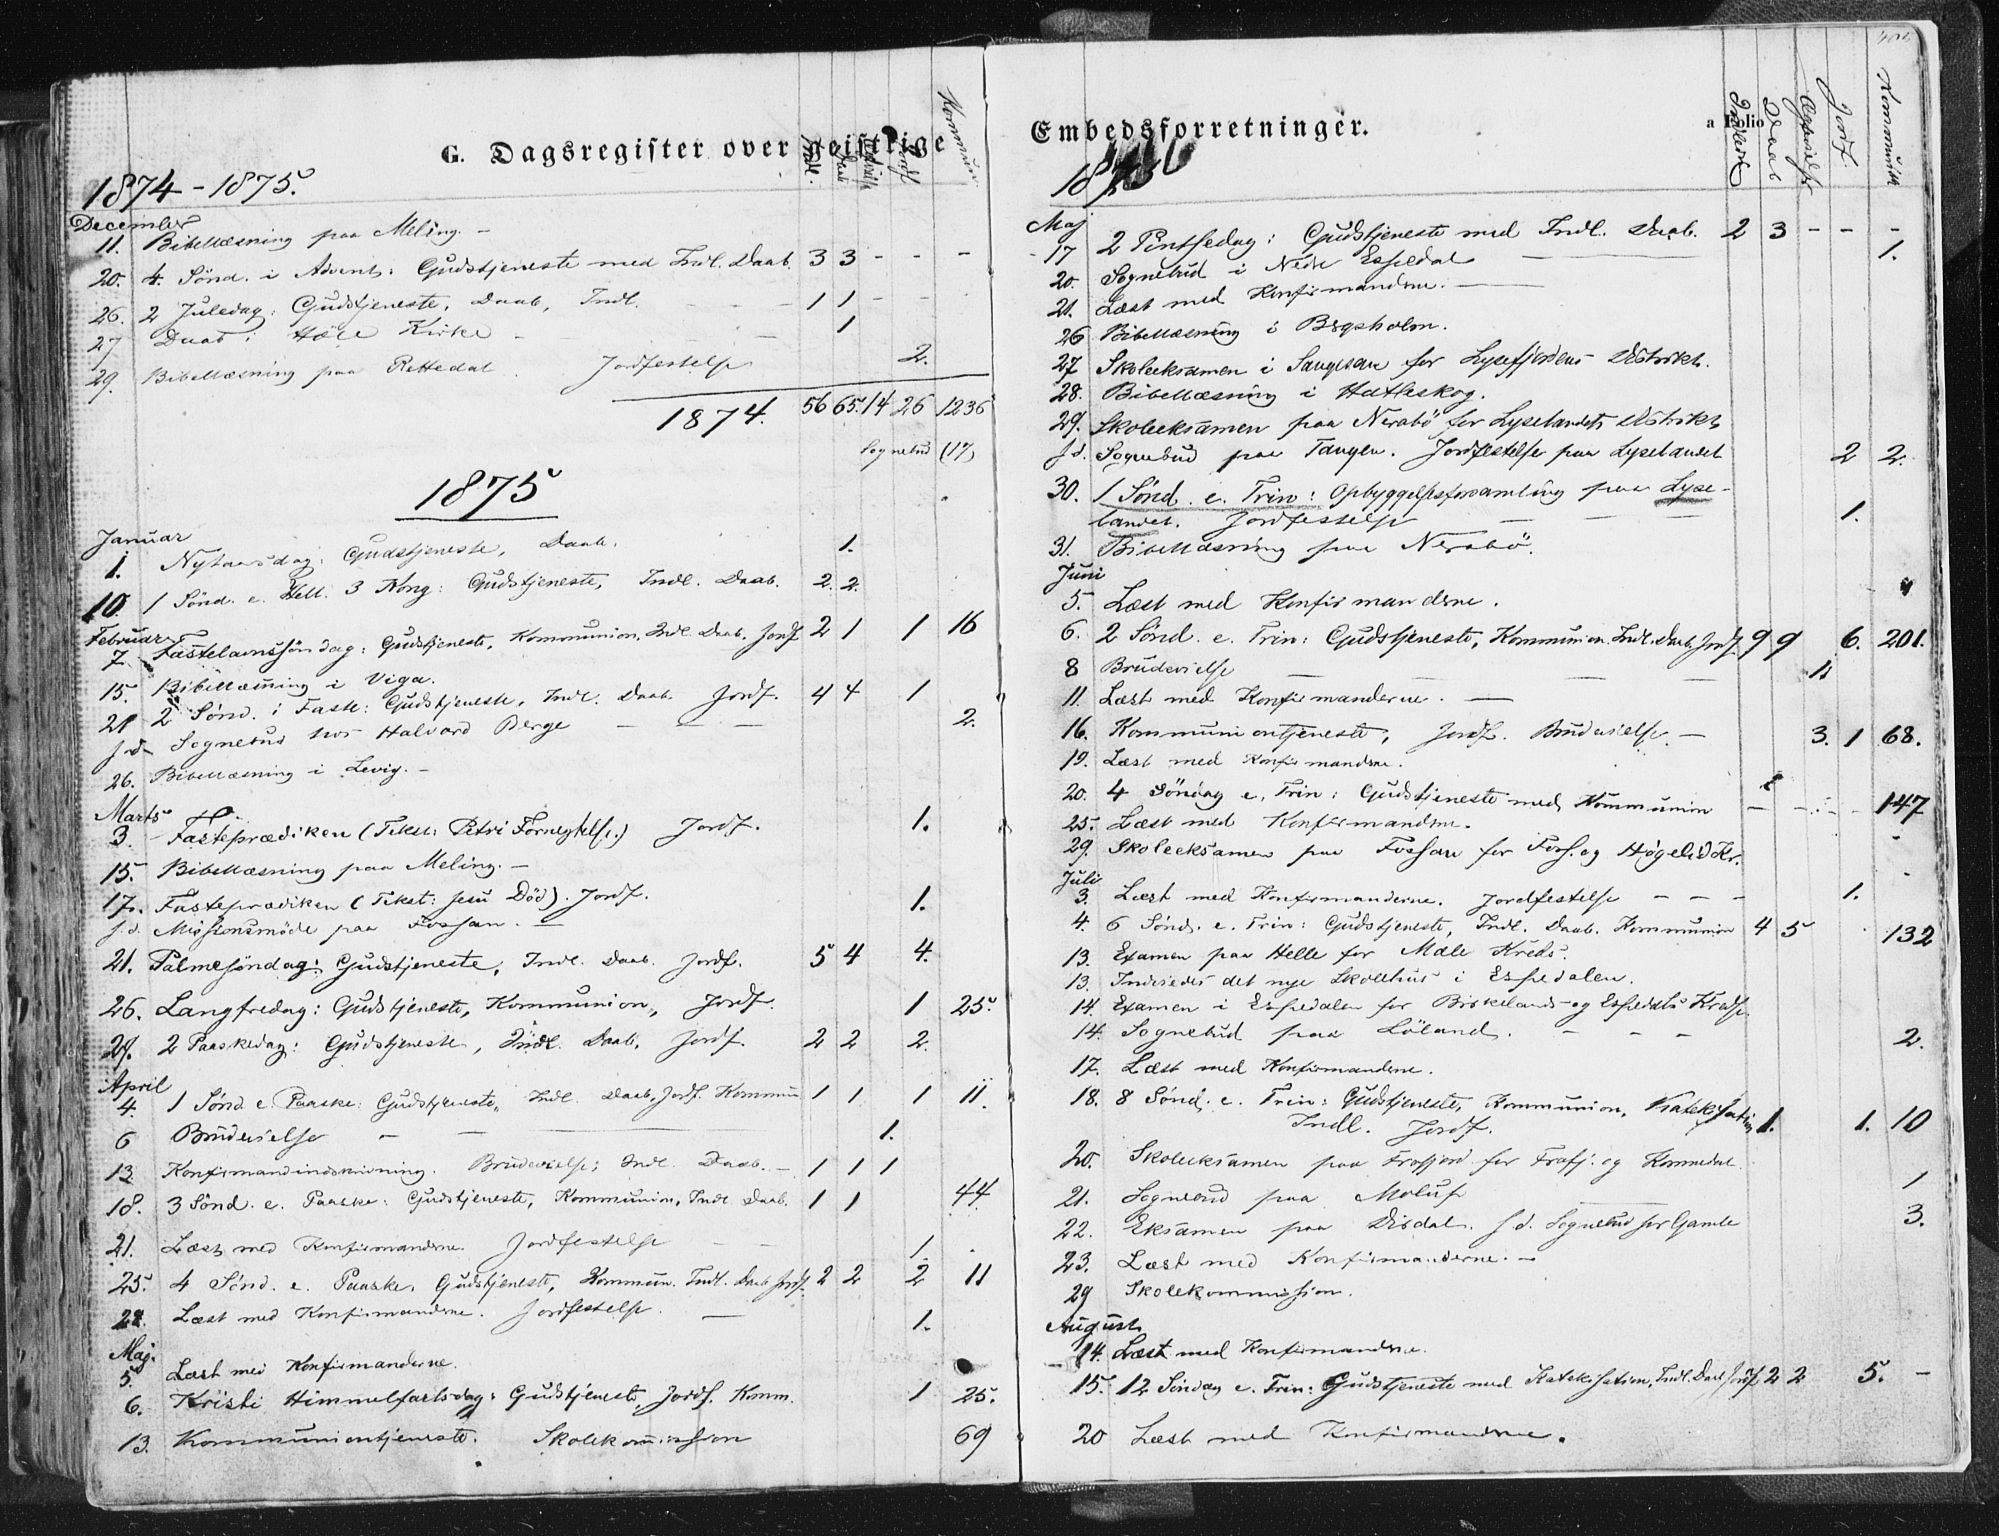 G. Dagsregister over geistlige
Indl. Daab Jordf Kommun
1874-1875.
December
11. Bibellæsning paa Meling. -
20. 4. Sönd. i Advent: Gudstjeneste med Indl. Daab. 3 3 - - -
26. 2 Juledag: Gudstjeneste, Daab, Indl. - - - 1 1 - -
27 Daab i Höle Kirke - - 1
29. Bibellæsning paa Rettedal. Jordfestelse 2.
1874. 56 65. 14 26 1236
Sognebud (17)
1875
Januar
1. Nytaarsdag: Gudstjeneste, Daab. 1.
10. 1 Sönd. e. Hell. 3 Kong: Gudstjeneste, Indl. Daab. 2. 2.
Februar
7. Fastelavnssöndag: Gudstjeneste, Kommunion. Indl. Daab. Jordf 2 1 1 16
15. Bibellæsning i Viga.
21 2 Sönd. i Faste: Gudstjeneste, Indl. Daab. Jordf. 4 4 1
s. d. Sognebud hos Halvard Berge - - - 2.
26. Bibellæsning i Levig. -
Marts
3. Fasteprædiken (Tekst: Petri Fornegtelse.) Jordf. 1.
15. Bibellæsning paa Meling. -
17. Fasteprædiken (Tekst: Jesu Död). Jordf. 1.
s. d. Missionsmöde paa Fossan. -
21. Palmesöndag: Gudstjeneste, Indl. Daab. Jordf. 5 4 4.
26. Langfredag: Gudstjeneste, Kommunion, Jordf. 1 25.
29. 2 Paaskedag: Gudstjeneste, Indl. Daab, Jordf. 2 2 2.
April
4. 1 Sönd. e. Paaske: Gudstjeneste, Indl. Daab, Jordf. Kommun 1 1 1 11.
6 Brudevielse - - - - - 1.
13. Konfirmandindskrivning. Brudevielse; Indl. Daab. - 1 1 1
18. 3 Sönd. e. Paaske: Gudstjeneste, Kommunion, Indl Daab. 1 1 44.
21. Læst med Konfirmanderne. Jordfestelse - - 1.
25. 4 Sönd. e. Paaske. Gudstjeneste, Kommun. Indl. Daab Jordf. 2 2 2 11
28. Læst med Konfirmanderne. Jordfestelse. - 1.
Maj.
5. Læst med Konfirmanderne.
6. Kristi Himmelfartsdag: Gudstjeneste, Jordf. Komm. 1 25.
13. Kommuniontjeneste. Skolekommission 69
Embedsforretninger.
a Folio
Daab Jordf. Kommunik
Maj
17 2 Pintsedag: Gudstjeneste med Indl. Daab. 2 3 - - -
20. Sognebud i Nedre Espedal - - 1.
21. Læst med Konfirmanderne. -
26 Bibellæsning i Bergsholm.
27. Skoleeksamen i Sangesan for Lysefjordens Distrikt.
28. Bibellæsning i Hatleskog.
29. Skoleeksamen paa Nerabö for Lyselandets Distrikt
s. d. Sognebud paa Tangen. Jordfestelse paa Lyselandet 2 2.
30. 1 Sönd. e. Trin: Opbyggelsesforsamling paa Lyse-
landet. Jordfestelse - - - 1.
31. Bibellæsning paa Nerabö.
Juni
5. Læst med Konfirmanderne.
6. 2 Sönd. e. Trin: Gudstjeneste, Kommunion. Indl. Daab, Jordf. 9 9 6. 201.
8 Brudevielse - - - 1
11. Læst med Konfirmanderne. -
16. Kommuniontjeneste, Jordf. Brudevielse. - 3. 1 68.
19. Læst med Konfirmanderne.
20. 4 Söndag e. Trin: Gudstjeneste med Kommunion - - - - 147
25. Læst med Konfirmanderne.
29. Skoleeksamen paa Fossan for Fors. og Högelid Kr.
Juli
3. Læst med Konfirmanderne. Jordfestelse - - - 1.
4. 6 Sönd. e. Trin: Gudstjeneste, Indl. Daab. Kommunion 4 5 132
13. Examen paa Helle for Mæle Kreds.
13. Indviedes det nye Skolehus i Espedalen.
14. Examen i Espedalen for Birkelands- og Espedals Kredse.
14. Sognebud paa Löland. - - - 2.
17. Læst med Konfirmanderne.
18. 8 Sönd. e. Trin: Gudstjeneste, Kommunion, Katekisation
Indl. Jordf. 1. 1. 10
20. Skoleeksamen paa Frafjord for Frafj. og Kommedal.
21. Sognebud paa Molup 1
22. Eksamen paa Dirdal. s. d. Sognebud for Gamle 3.
23. Læst med Konfirmanderne. -
29 Skolekommission.
August
14. Læst med Konfirmanderne.
15. 12 Söndag e. Trin: Gudstjeneste med Katekisation, Indl. Daab Jordf 2 2 5. -
20 Læst med Konfirmanderne.